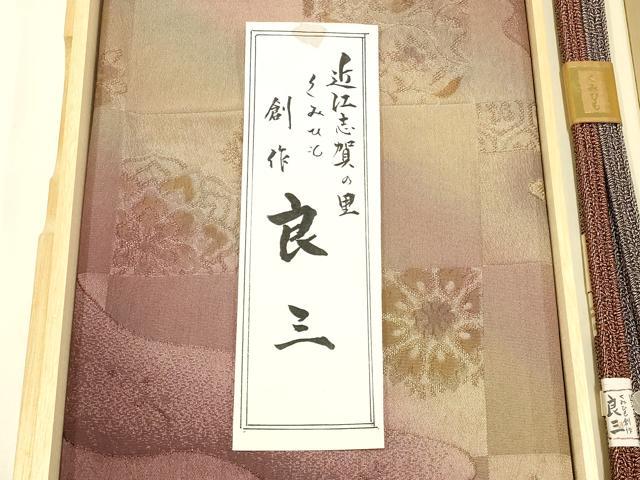 近江志賀の里
くみひも
創作
良三
くみひも
くみひも創作
良三